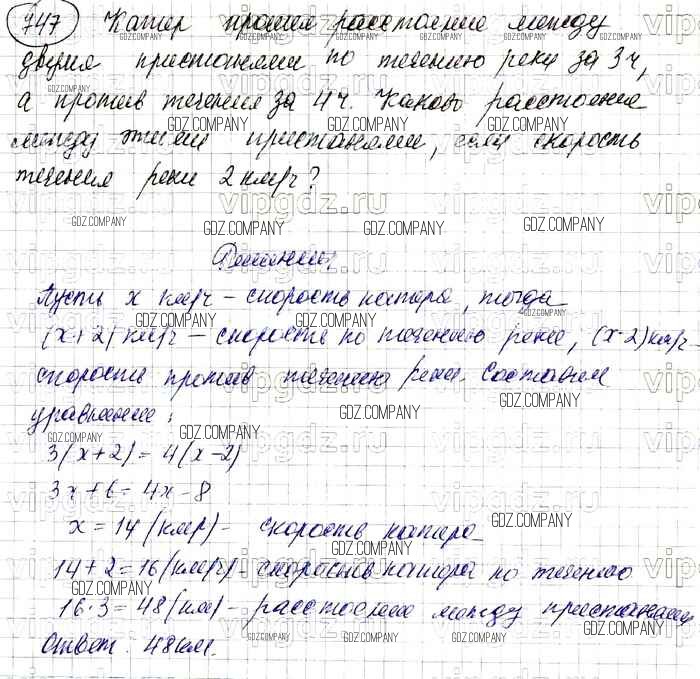 747 Катер прошел расстояние между
двумя пристанями по течению реки за 3ч,
а против течения за 4ч. Каково расстояние
между этими пристанями, если скорость
течения реки 2 км/ч?
Решение:
Пусть x км/ч – скорость катера, тогда
(x+2) км/ч – скорость по течению реки, (x-2) км/ч –
скорость против течения реки. Составим
уравнение:
3(x+2) = 4(x-2)
3x+6 = 4x-8
x = 14 (км/ч) – скорость катера
14+2 = 16 (км/ч) – скорость катера по течению
16·3 = 48 (км) – расстояние между пристанями
Ответ: 48 км.
vipgdz.ru
GDZ.COMPANY